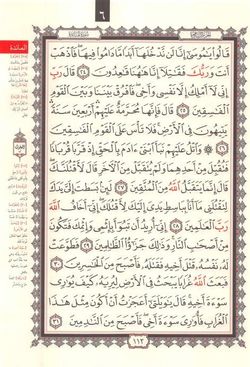 ٦
المائدة
قَالُوا۟ يَـٰمُوسَىٰٓ إِنَّا لَن نَّدْخُلَهَآ أَبَدًا مَّا دَامُوا۟ فِيهَا فَٱذْهَبْ
أَنتَ وَرَبُّكَ فَقَـٰتِلَآ إِنَّا هَـٰهُنَا قَـٰعِدُونَ ﴿٢٤﴾ قَالَ رَبِّ
إِنِّى لَآ أَمْلِكُ إِلَّا نَفْسِى وَأَخِى فَٱفْرُقْ بَيْنَنَا وَبَيْنَ ٱلْقَوْمِ
ٱلْفَـٰسِقِينَ ﴿٢٥﴾ قَالَ فَإِنَّهَا مُحَرَّمَةٌ عَلَيْهِمْ أَرْبَعِينَ سَنَةً
يَتِيهُونَ فِى ٱلْأَرْضِ فَلَا تَأْسَ عَلَى ٱلْقَوْمِ ٱلْفَـٰسِقِينَ
﴿٢٦﴾ وَٱتْلُ عَلَيْهِمْ نَبَأَ ٱبْنَىْ ءَادَمَ بِٱلْحَقِّ إِذْ قَرَّبَا قُرْبَانًا
فَتُقُبِّلَ مِنْ أَحَدِهِمَا وَلَمْ يُتَقَبَّلْ مِنَ ٱلْـَٔاخَرِ قَالَ لَأَقْتُلَنَّكَ
قَالَ إِنَّمَا يَتَقَبَّلُ ٱللَّهُ مِنَ ٱلْمُتَّقِينَ ﴿٢٧﴾ لَئِنۢ بَسَطتَ إِلَىَّ يَدَكَ
لِتَقْتُلَنِى مَآ أَنَا۠ بِبَاسِطٍ يَدِىَ إِلَيْكَ لِأَقْتُلَكَ إِنِّىٓ أَخَافُ ٱللَّهَ
رَبَّ ٱلْعَـٰلَمِينَ ﴿٢٨﴾ إِنِّىٓ أُرِيدُ أَن تَبُوٓأَ بِإِثْمِى وَإِثْمِكَ فَتَكُونَ
مِنْ أَصْحَـٰبِ ٱلنَّارِ وَذَٰلِكَ جَزَٰٓؤُا۟ ٱلظَّـٰلِمِينَ ﴿٢٩﴾ فَطَوَّعَتْ
لَهُۥ نَفْسُهُۥ قَتْلَ أَخِيهِ فَقَتَلَهُۥ فَأَصْبَحَ مِنَ ٱلْخَـٰسِرِينَ ﴿٣٠﴾
فَبَعَثَ ٱللَّهُ غُرَابًا يَبْحَثُ فِى ٱلْأَرْضِ لِيُرِيَهُۥ كَيْفَ يُوَٰرِى
سَوْءَةَ أَخِيهِ قَالَ يَـٰوَيْلَتَىٰٓ أَعَجَزْتُ أَنْ أَكُونَ مِثْلَ هَـٰذَا
ٱلْغُرَابِ فَأُوَٰرِىَ سَوْءَةَ أَخِى فَأَصْبَحَ مِنَ ٱلنَّـٰدِمِينَ ﴿٣١﴾
١١٢